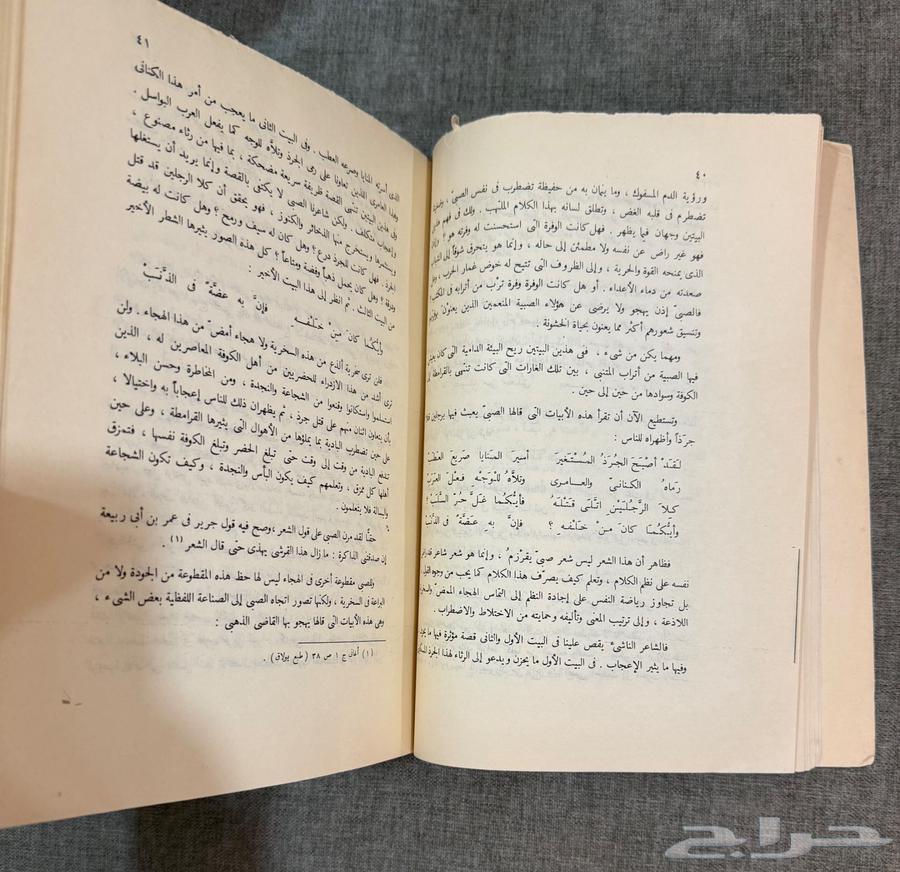 ٤٠
ورؤية الدم المسفوك ، وما ينمان به من حفيظة تضطرب فى نفس الصبى ،
تضطرم فى قلبه الغض ، وتطلق لسانه بهذا الكلام الملتهب . ولك فى فهم
البيتين وجهان فيما يظهر . فهل كانت الوفرة التى استحسنت له وفرته هو ؟
فهو غير راض عن نفسه ولا مطمئن إلى حاله ، وإنما هو يتحرق شوقاً إلى
الذى يمنحه القوة والحرية ، وإلى الظروف التى تتيح له خوض غمار الحرب ،
صعدته من دماء الأعداء . أو هل كانت الوفرة وفرة ترب من أترابه فى المكتب ؟
فالصبى إذن يهجو ولا يرضى عن هؤلاء الصبية المنعمين الذين يعنون
وتنسيق شعورهم أكثر مما يعنون بحياة الخشونة .
ومهما يكن من شىء ، ففى هذين البيتين ريح البيئة الدامية التى كان يعيش
فيها الصبية من أتراب المتنبى ، بين تلك الغارات التى كانت تشنى بالقرامطة
الكوفة وسوادها من حين إلى حين .
وتستطيع الآن أن تقرأ هذه الأبيات التى قالها الصبى يعبث فيها برجلين
جرذاً وأظهراه للناس :
لقد أصبح الجرذ المستغير أسير المنايا صريع العطب
رماه الكنانى والعامرى وتلاه للوجه فعل العرب
كلا الرجلين اتلى قتله فأيكما غل حر السلب
وأيكما كان من خلفه ؟ فإن به عضة فى الذنب
فظاهر أن هذا الشعر ليس شعر صبى يقرزم ، وإنما هو شعر شاعر قد
نفسه على نظم الكلام ، وتعلم كيف يصرف هذا الكلام كما يجب من وجوه القول ،
بل تجاوز رياضة النفس على إجادة النظم إلى التماس الهجاء الممض
اللاذعة ، وإلى ترتيب المعنى وتأليفه وحمايته من الاختلاط والاضطراب .
فالشاعر الناشئ يقص علينا فى البيت الأول والثانى قصة مؤثرة فيها ما يحزن
وفيها ما يثير الإعجاب . فى البيت الأول ما يحزن ويدعو إلى الرثاء لهذا الجرذ
٤١
الذى أسرته المنايا وصرعه العطب . وفى البيت الثانى ما يعجب من أمر هذا الكنانى
وهذا العامرى اللذين تعاونا على رمى الجرذ وتلاه للوجه كما يفعل العرب البواسل .
وفى هذين البيتين تنتهى القصة ظريفة سريعة مضحكة ، بما فيها من رثاء مصنوع ،
وإعجاب متكلف . ولكن شاعرنا الصبى لا يكتفى بالقصة وإنما يريد أن يستغلها
ويستثمرها ويستخرج منها الذخائر والكنوز ، فهو يحقق أن كلا الرجلين قد قتل
الجرذ . فهل كانت للجرذ درع ؟ وهل كان له سيف ورمح ؟ وهل كانت له بيضة
ودرقة ؟ وهل كان يحمل ذهباً وفضة ومتاعاً ؟ كل هذه الصور يثيرها الشطر الأخير
من البيت الثالث . ثم انظر إلى هذا البيت الأخير :
وأيكما كان من خلفه فإن به عضة فى الذنب
فلن ترى سخرية ألذع من هذه السخرية ولا هجاء أمض من هذا الهجاء . ولن
ترى أشد من هذا الازدراء للحضريين من أهل الكوفة المعاصرين له ، الذين
استسلموا واستكانوا وقنعوا من الشجاعة والنجدة ، ومن المخاطرة وحسن البلاء ،
بأن يتعاون اثنان منهم على قتل جرذ ، ثم يظهران ذلك للناس إعجاباً به واختيالا ،
على حين تضطرب البادية بما يملؤها من الأهوال التى يثيرها القرامطة ، وعلى حين
تندفع البادية من وقت إلى وقت حتى تبلغ الحضر وتبلغ الكوفة نفسها ، فتمزق
أهلها كل ممزق ، وتعلمهم كيف يكون البأس والنجدة ، وكيف تكون الشجاعة
والبسالة فلا يتعلمون .
حقاً لقد مرن الصبى على قول الشعر ، وصح فيه قول جرير فى عمر بن أبى ربيعة
إن صدقتنى الذاكرة : ما زال هذا القرشى يهذى حتى قال الشعر (١) .
وللصبى مقطوعة أخرى فى الهجاء ليس لها حظ هذه المقطوعة من الجودة ولا من
البراعة فى السخرية ، ولكنها تصور اتجاه الصبى إلى الصناعة اللفظية بعض الشىء ،
وهى هذه الأبيات التى قالها يهجو بها القاضى الذهبى :
(١) أغانى ج ١ ص ٣٨ (طبع بولاق) .
حراج